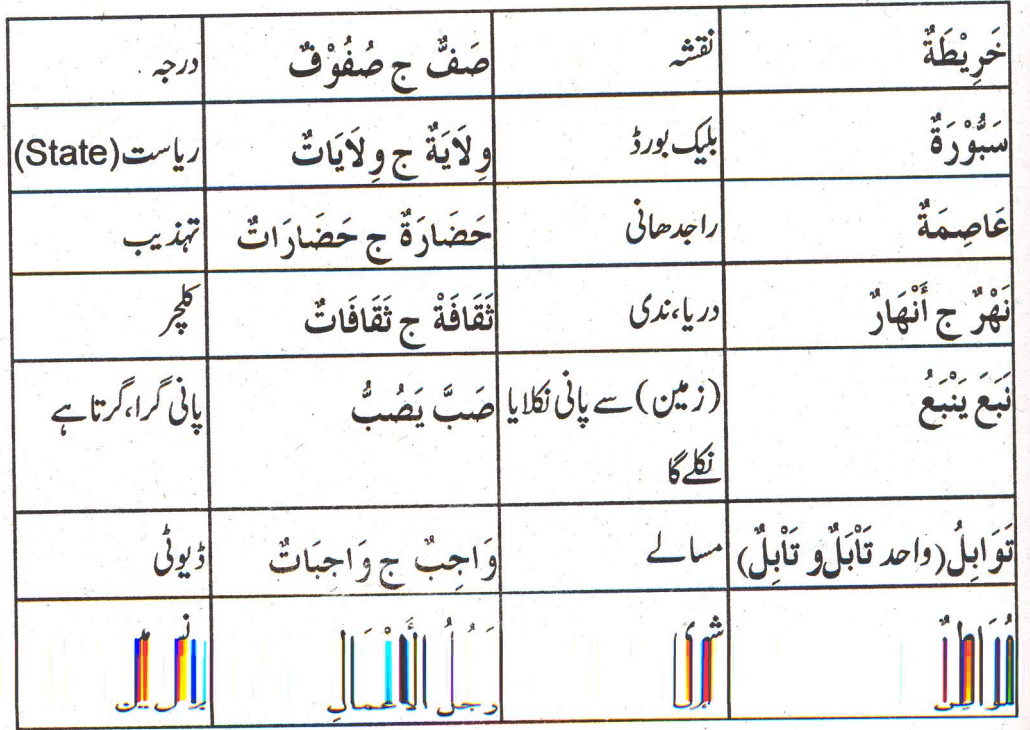 خَرِيْطَةٌ نقشہ صَفٌّ ج صُفُوْفٌ درجہ
سَبُّوْرَةٌ بلیک بورڈ وِلَايَةٌ ج وِلَايَاتٌ ریاست(State)
عَاصِمَةٌ راجدھانی حَضَارَةٌ ج حَضَارَاتٌ تہذیب
نَهْرٌ ج أَنْهَارٌ دریا،ندی ثَقَافَةْ ج ثَقَافَاتٌ کلچر
نَبَعَ يَنْبَعُ (زمین)سے پانی نکلایا صَبَّ يَصُبُّ پانی گرا،گرتا ہے
نکلے گا
تَوَابِلُ(واحد تَاْبَلٌ و تَاْبِلٌ) مسالے وَاجِبٌ ج وَاجِبَاتٌ ڈیوٹی
رَجُلُ الْأَعْمَالِ